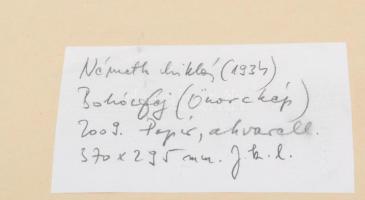 Németh Miklós (1934)
Bohócfej (Önarckép)
2009. Papír, akvarell.
370 x 295 mm. J. b. l.